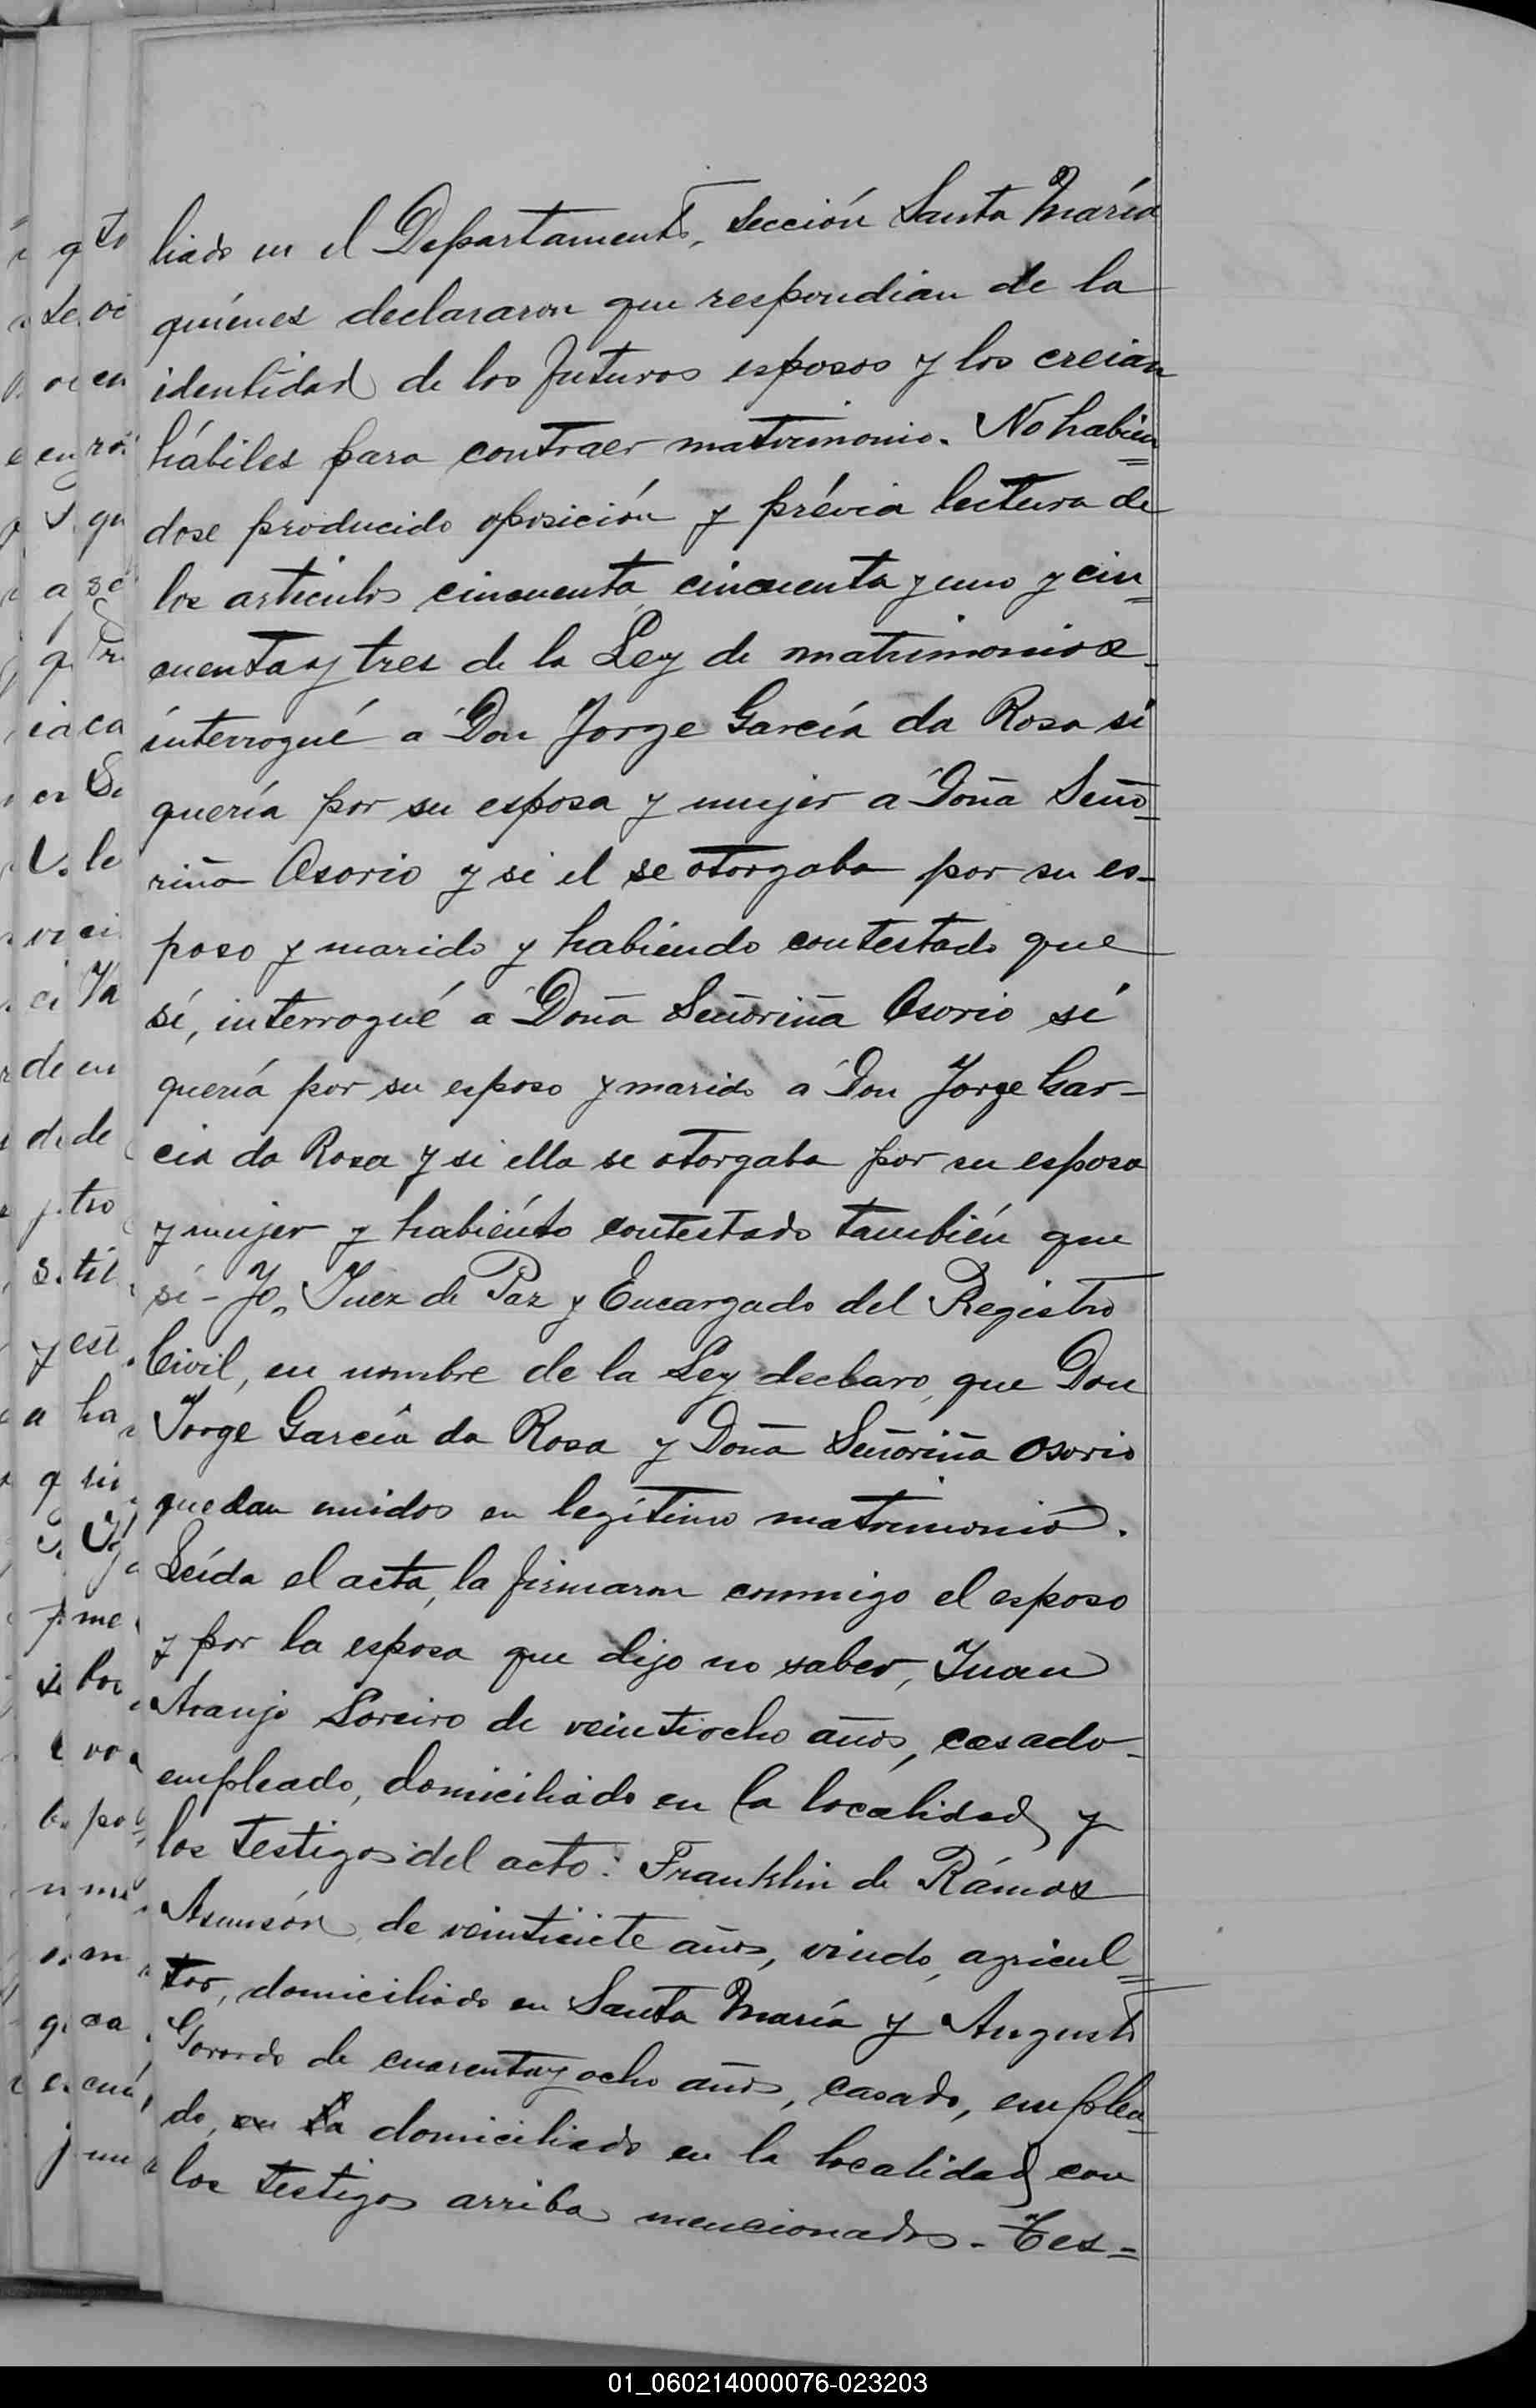 liado en el Departamento, sección Santa María
quiénes declararon que respondian de la
identidad de los futuros esposos y los creian
hábiles para contraer matrimonio. No habien=
dose producido oposición y prévia lectura de
los articulos cincuenta, cincuenta y uno y cin=
cuenta y tres de la Ley de matrimonios
interrogué a Don Jorge García da Rosa si
quería por su esposa y mujer a Doña Seño=
riña Osorio y si el se otorgaba por su es-
poso y marido y habiendo contestado que
sí, interrogué a Doña Señoriña Osorio si
quería por su esposo y marido a Don Jorge Gar-
cia da Rosa y si ella se otorgaba por su esposa
y mujer y habiéndo contestado también que
sí - Yo, Juez de Paz y Encargado del Registro
Civil, en nombre de la Ley declaro, que Don
Jorge García da Rosa y Doña Señoriña Osorio
quedan unidos en legítimo matrimonio.
Leída el acta, la firmaron conmigo el esposo
y por la esposa que dijo no saber, Juan
Araujo Loreiro de veintiocho años, casado-
empleado, domiciliado en la localidad y
los testigos del acto: Franklin de Rámos
Asunsón, de veintisiete años, viudo, agricul=
tor, domiciliado en Santa María y Augusto
de cuarenta y ocho años, casado, emplea=
do, en la domiciliado en la localidad con
los testigos arriba mencionados. - Tes=
01_060214000076-023203